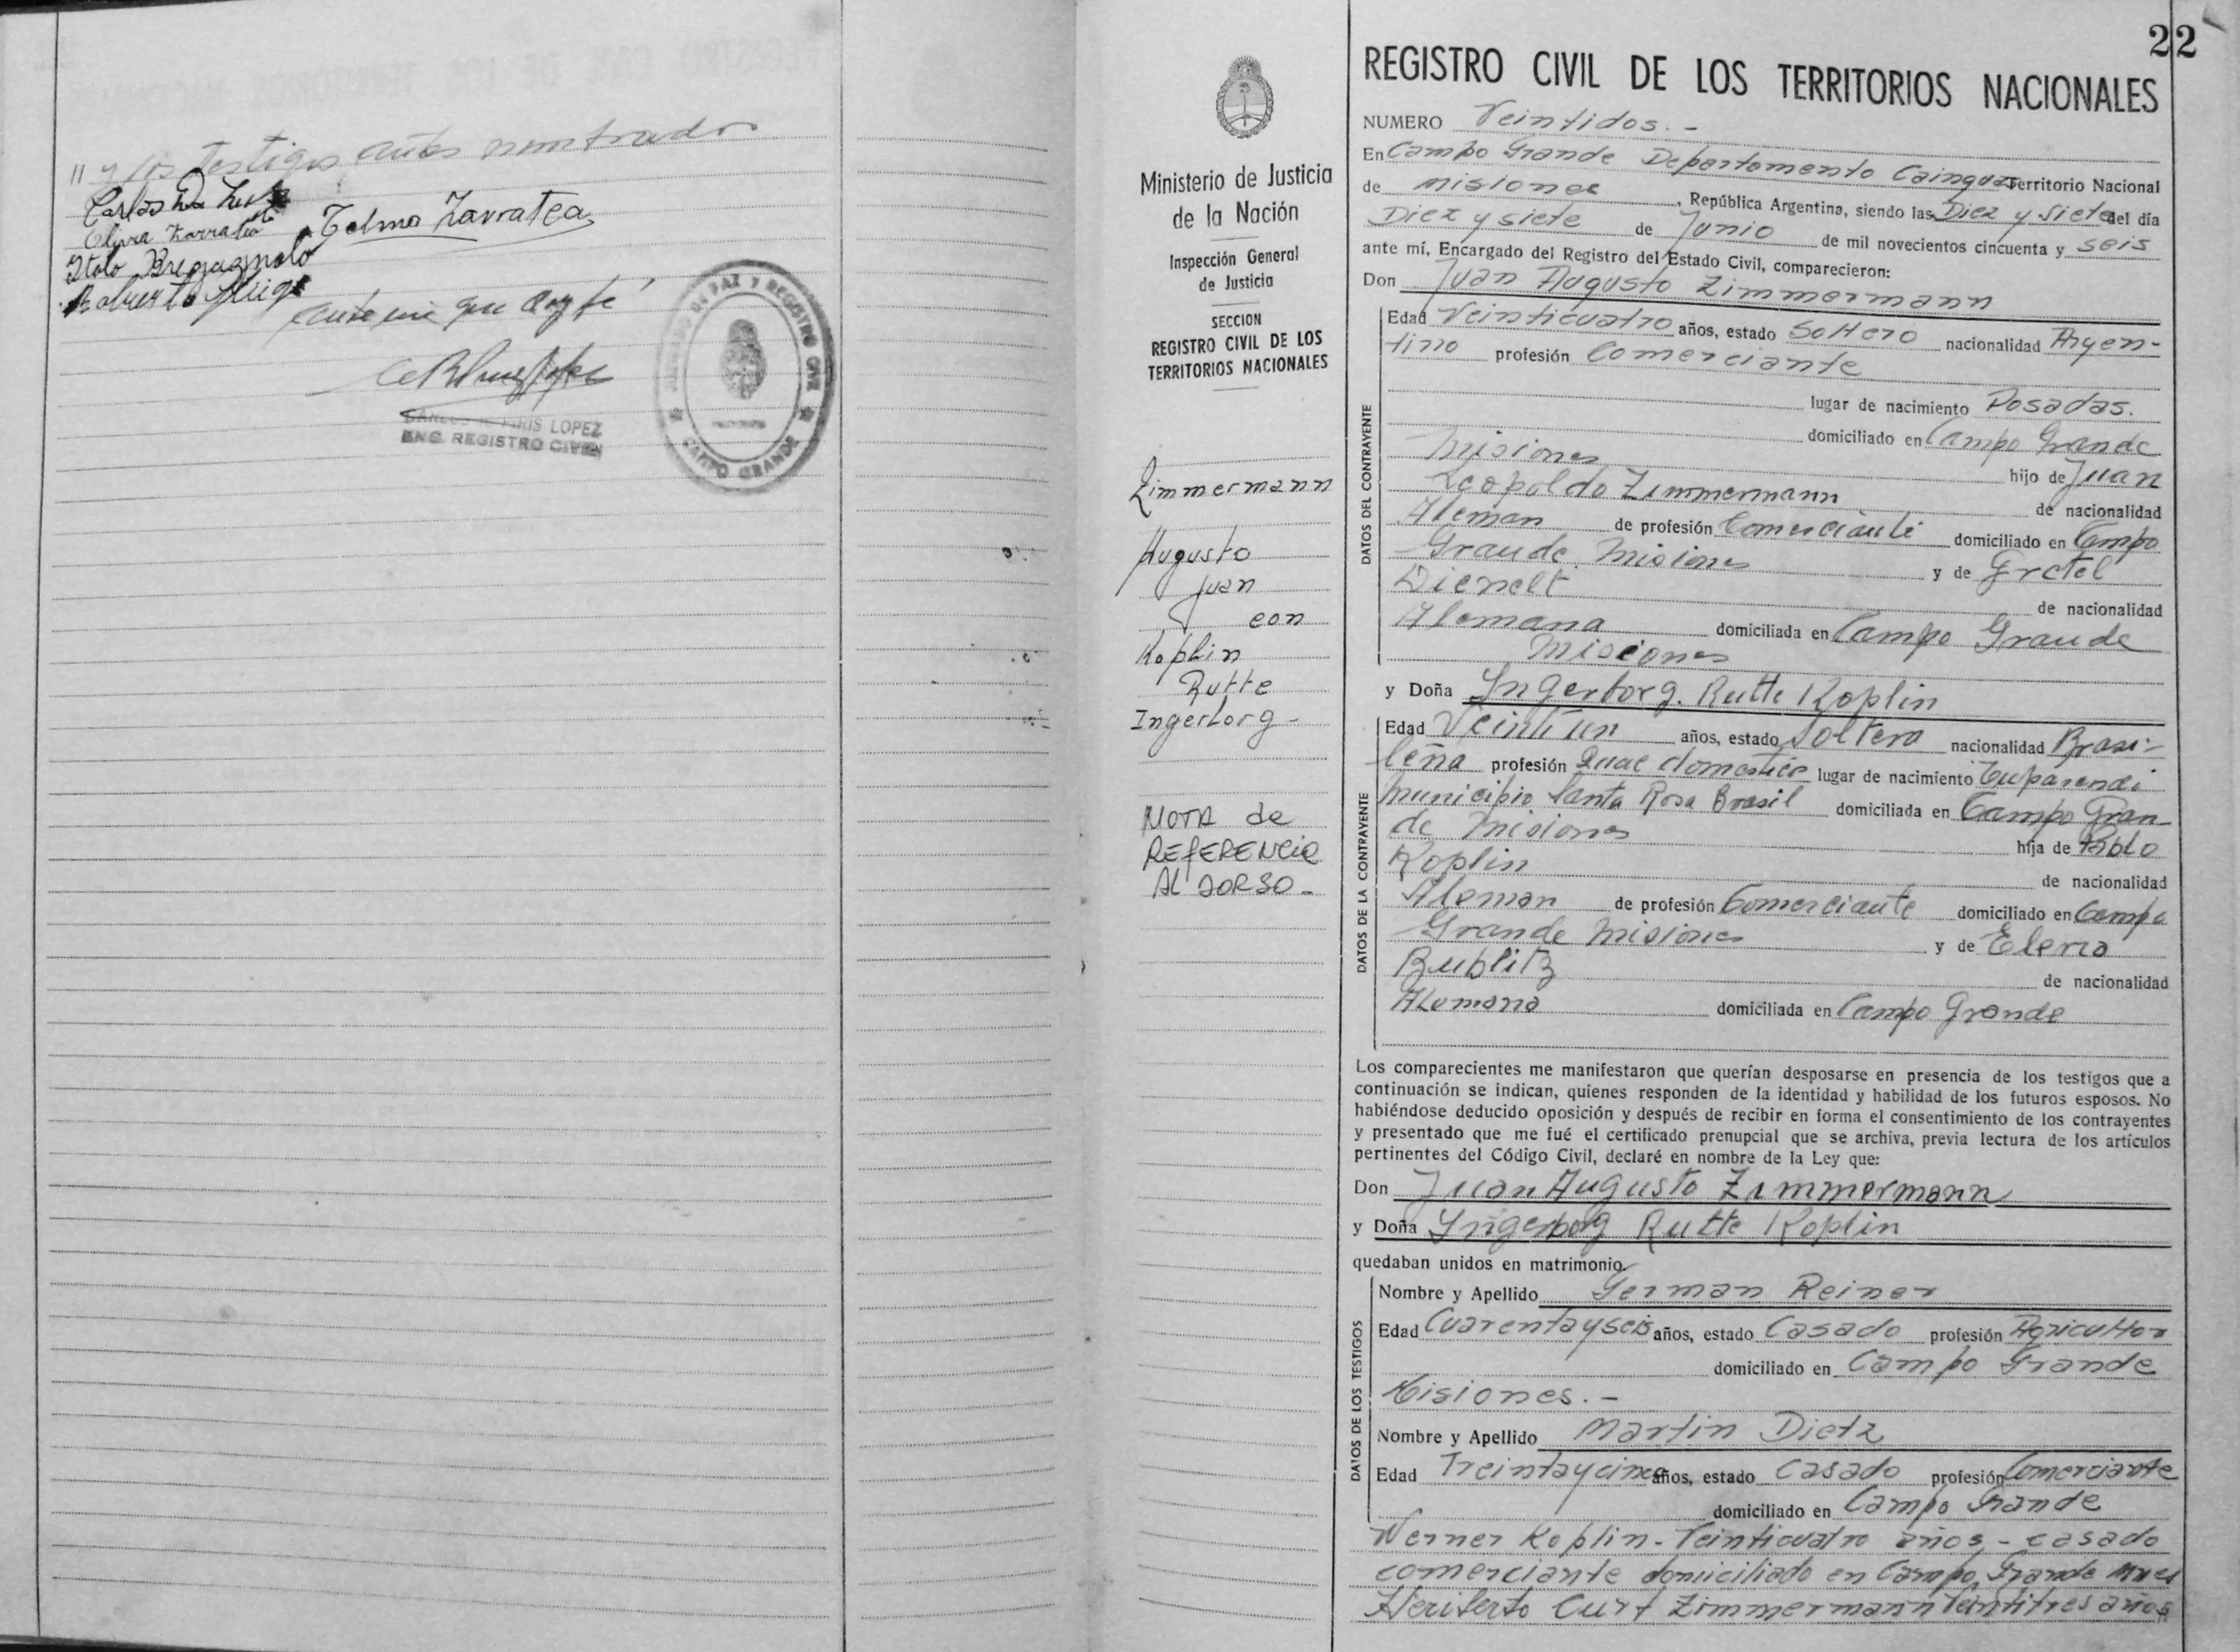 " y los testigos antes nombrados
Carlos
Elvira Zarratea
Telma Zarratea
Italo Bregagnolo
Roberto
ante mi que doy fé
CARLOS R. PIRIS LOPEZ
ENC. REGISTRO CIVIL
JUZGADO DE PAZ Y REGISTRO CIVIL
CAMPO GRANDE
22
Ministerio de Justicia
de la Nación
Inspección General
de Justicia
SECCION
REGISTRO CIVIL DE LOS
TERRITORIOS NACIONALES
Zimmermann
Augusto
Juan
con
Koplin
Rutte
Ingerborg -
NOTA de
REFERENCIA
AL DORSO -
REGISTRO CIVIL DE LOS TERRITORIOS NACIONALES
NUMERO Veintidos. -
En Campo Grande Departamento Cainguas Territorio Nacional
de Misiones, República Argentina, siendo las Diez y siete del día
Diez y siete de Junio de mil novecientos cincuenta y seis
ante mí, Encargado del Registro del Estado Civil, comparecieron:
Don Juan Augusto Zimmermann
DATOS DEL CONTRAYENTE
Edad Veinticuatro años, estado Soltero nacionalidad Argen-
tino profesión Comerciante
lugar de nacimiento Posadas.
domiciliado en Campo Grande
Misiones hijo de Juan
Leopoldo Zimmermann de nacionalidad
Aleman de profesión Comerciante domiciliado en Campo
Grande Misiones y de Gretel
Dienelt de nacionalidad
Alemana domiciliada en Campo Grande
Misiones
y Doña Ingerborg. Rutte Koplin
DATOS DE LA CONTRAYENTE
Edad Veintiun años, estado Soltera nacionalidad Brasi-
leña profesión Quac domestico lugar de nacimiento Tuparendi
Municipio Santa Rosa Brasil domiciliada en Campo Gran
de Misiones hija de Pablo
Koplin de nacionalidad
Aleman de profesión Comerciante domiciliado en Campo
Grande Misiones y de Elena
Bublitz de nacionalidad
Alemana domiciliada en Campo Grande
Los comparecientes me manifestaron que querían desposarse en presencia de los testigos que a
continuación se indican, quienes responden de la identidad y habilidad de los futuros esposos. No
habiéndose deducido oposición y después de recibir en forma el consentimiento de los contrayentes
y presentado que me fué el certificado prenupcial que se archiva, previa lectura de los artículos
pertinentes del Código Civil, declaré en nombre de la Ley que:
Don Juan Augusto Zimmermann
y Doña Ingerborg Rutte Koplin
quedaban unidos en matrimonio
DATOS DE LOS TESTIGOS
Nombre y Apellido German Reiner
Edad Cuarentayseis años, estado Casado profesión Agricultor
domiciliado en Campo Grande
Misiones. -
Nombre y Apellido Martin Dietz
Edad Treintaycinco años, estado Casado profesión Comerciante
domiciliado en Campo Grande
Werner Koplin - Veinticuatro años - casado
comerciante domiciliado en Campo Grande Mnes
Heriberto Curt Zimmermann Veintitres años